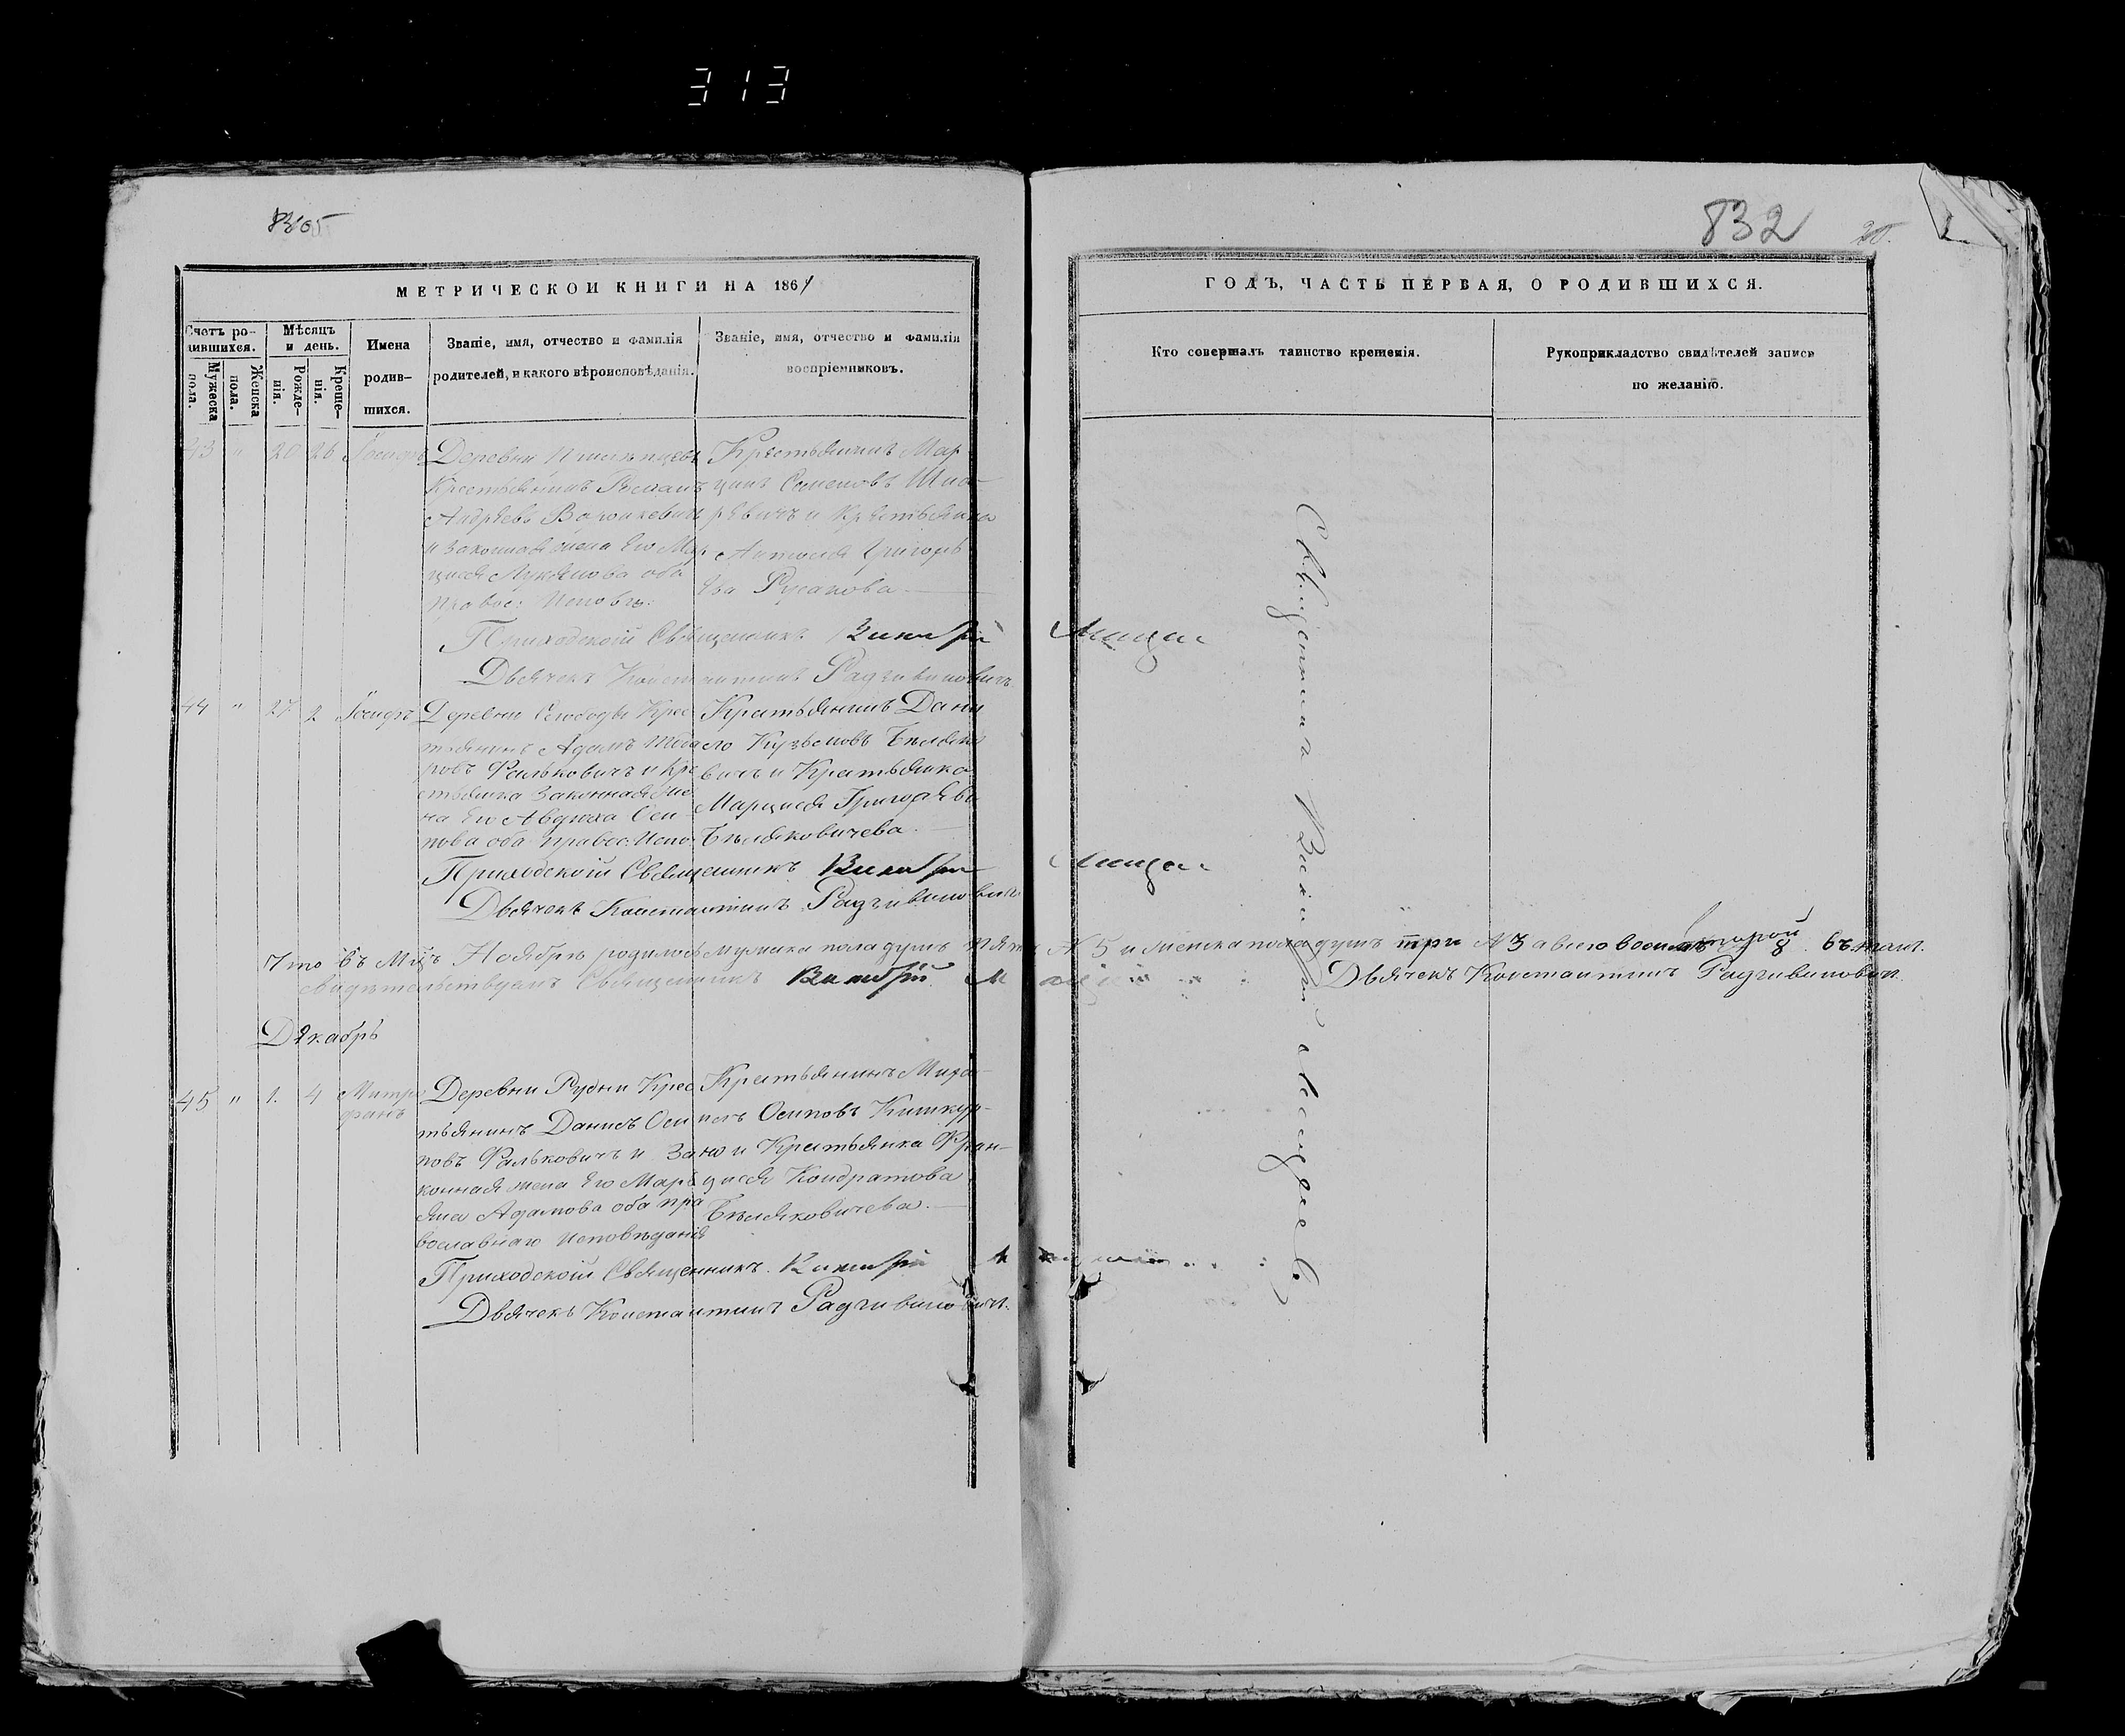 313
832
МЕТРИЧЕСКОИ КНИГИ НА 1861
ГОДЪ, ЧАСТЬ ПЕРВАЯ, О РОДИВШИХСЯ.
Счетъ ро-
дившихся.
Мужеска
пола.
Женска
пола.
Мѣсяцъ
и день.
Рожде-
нія.
Креще-
нія.
Имена
родив-
шихся.
Званіе, имя, отчество и фамилія
родителей, и какого вѣроисповѣданія.
Званіе, имя, отчество и фамилія
воспріемниковъ.
Кто совершалъ таинство крещенія.
Рукоприкладство свидѣтелей записи
по желанію.
43 " 20 26 Іосифъ
Деревни
Крестьянинъ Романъ
Андреевъ
и законная жена Его Мар
цися Лукянова оба
правос: Исповѣ:
Крестьянинъ Мар
цинъ Семеновъ
и Крестьянка
Антоля Григорь
ева Русакова
Приходскій Священникъ
Дьячекъ Константинъ Радзивиновичъ
44 " 27 2 Іосифъ
Деревни Слободы Крес
тьянинъ Адамъ
ровъ Фальковичъ и Кре
стьянка Законная же
на Его Авдюха Оси
пова оба правос: Испо:
Крестьянинъ Дани
ло Кузьмовъ Бѣляко
вичъ и Крестьянка
Марцися Григорьева
Бѣляковичева
Приходскій Священникъ
Дьячекъ Константинъ Радзивиновичъ
Что въ Мцѣ Ноябрѣ родилось мужска пола душъ пять № 5 и женска пола душъ три № 3 а всего 8 въ томъ
свидѣтельствуемъ Священникъ
Дьячекъ Константинъ Радзивиновичъ
Декабрь
45 " 1. 4 Митро
фанъ
Деревни Рудни Крес
тьянинъ Данисъ Оси
повъ Фальковичъ и За
конная жена Его Марь
яна Адамова оба пра
вославнаго Исповѣданія
Крестьянинъ Миха
Осиповъ
и Крестьянка Фран-
цися Кондратова
Бѣляковичева.
Приходскій Священникъ
Дьячекъ Константинъ Радзивиновичъ
Священникъ